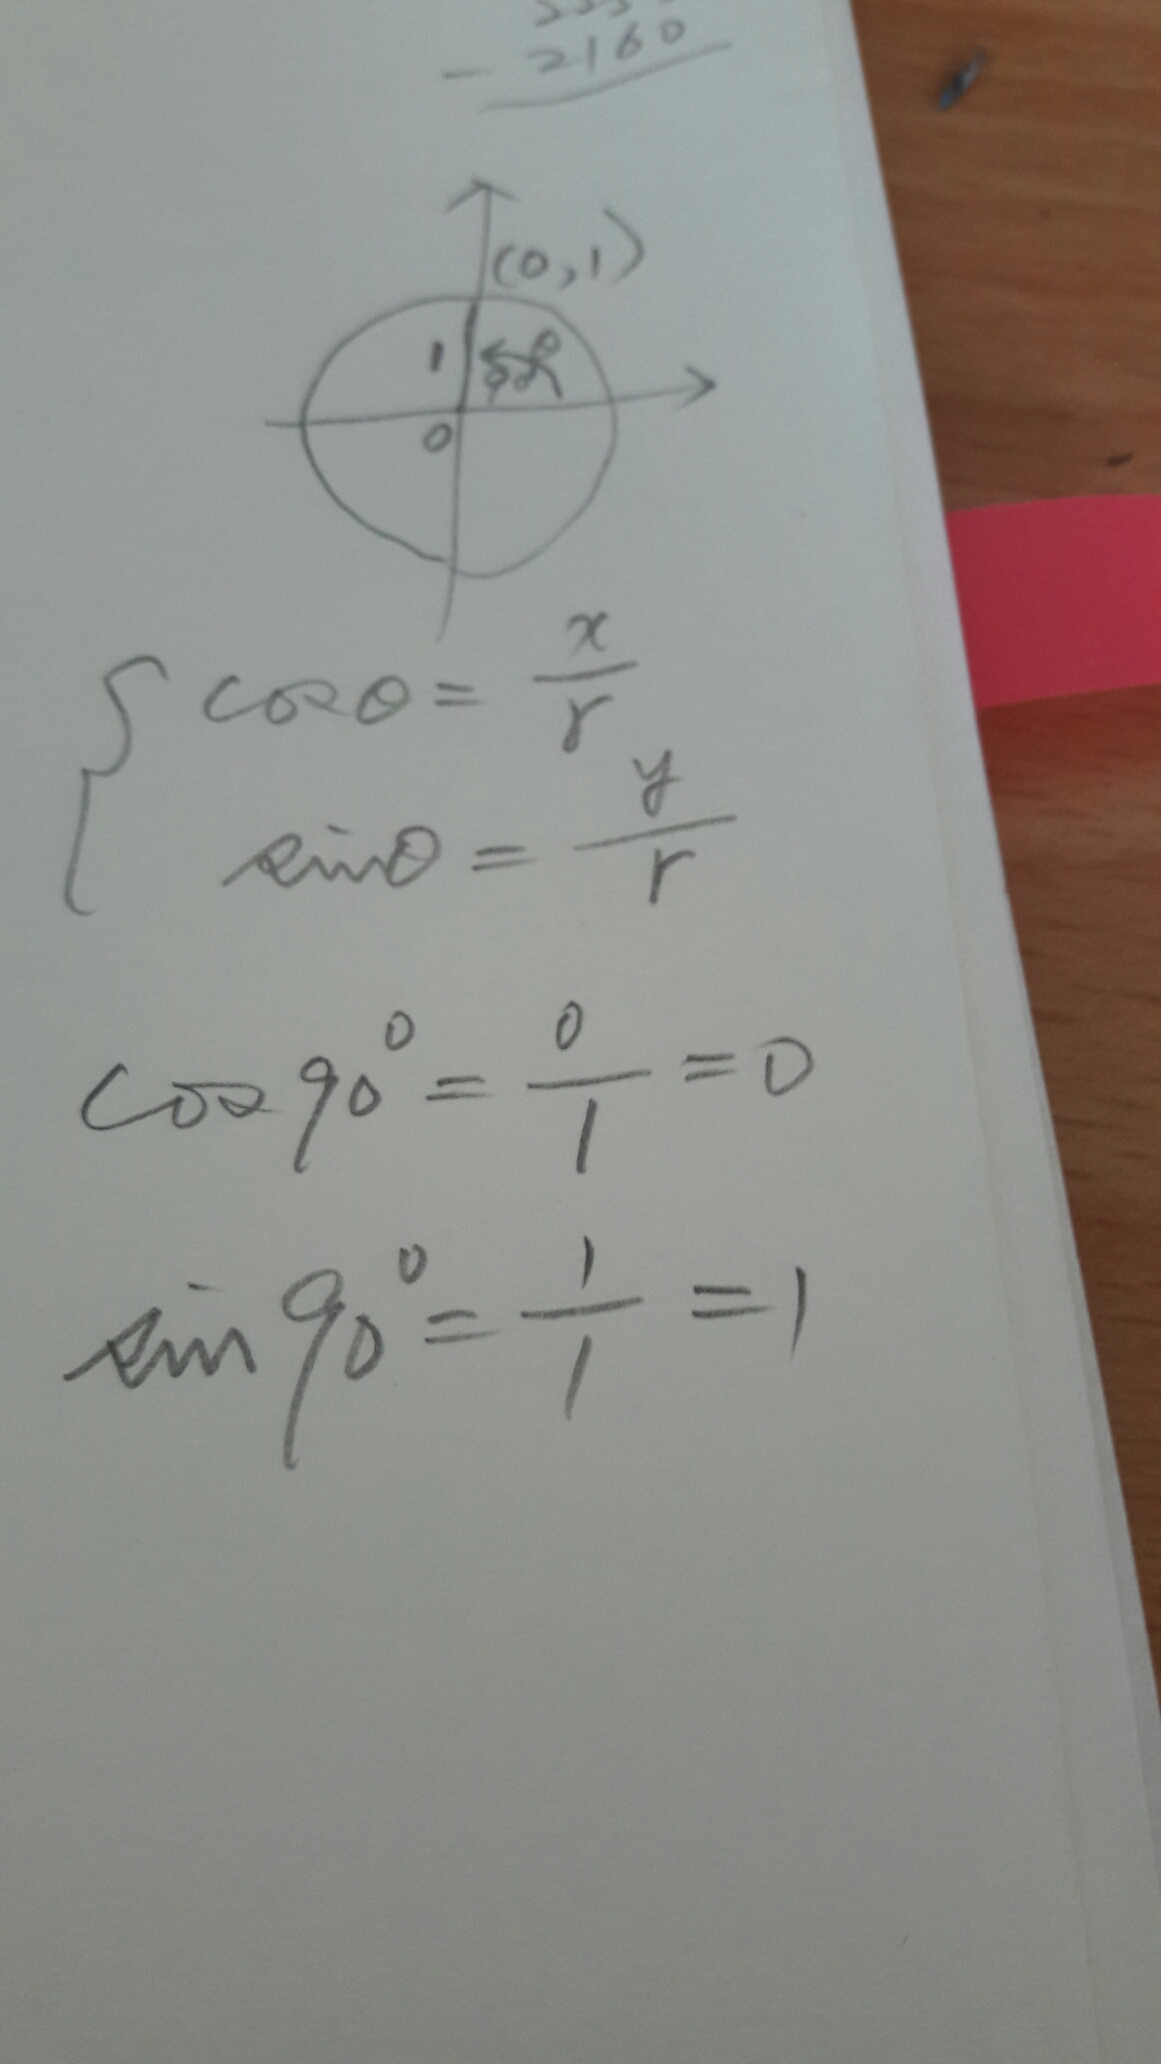 - 2160
(0,1)
1
0
cosθ = x/r
sinθ = y/r
cos90° = 0/1 = 0
sin90° = 1/1 = 1